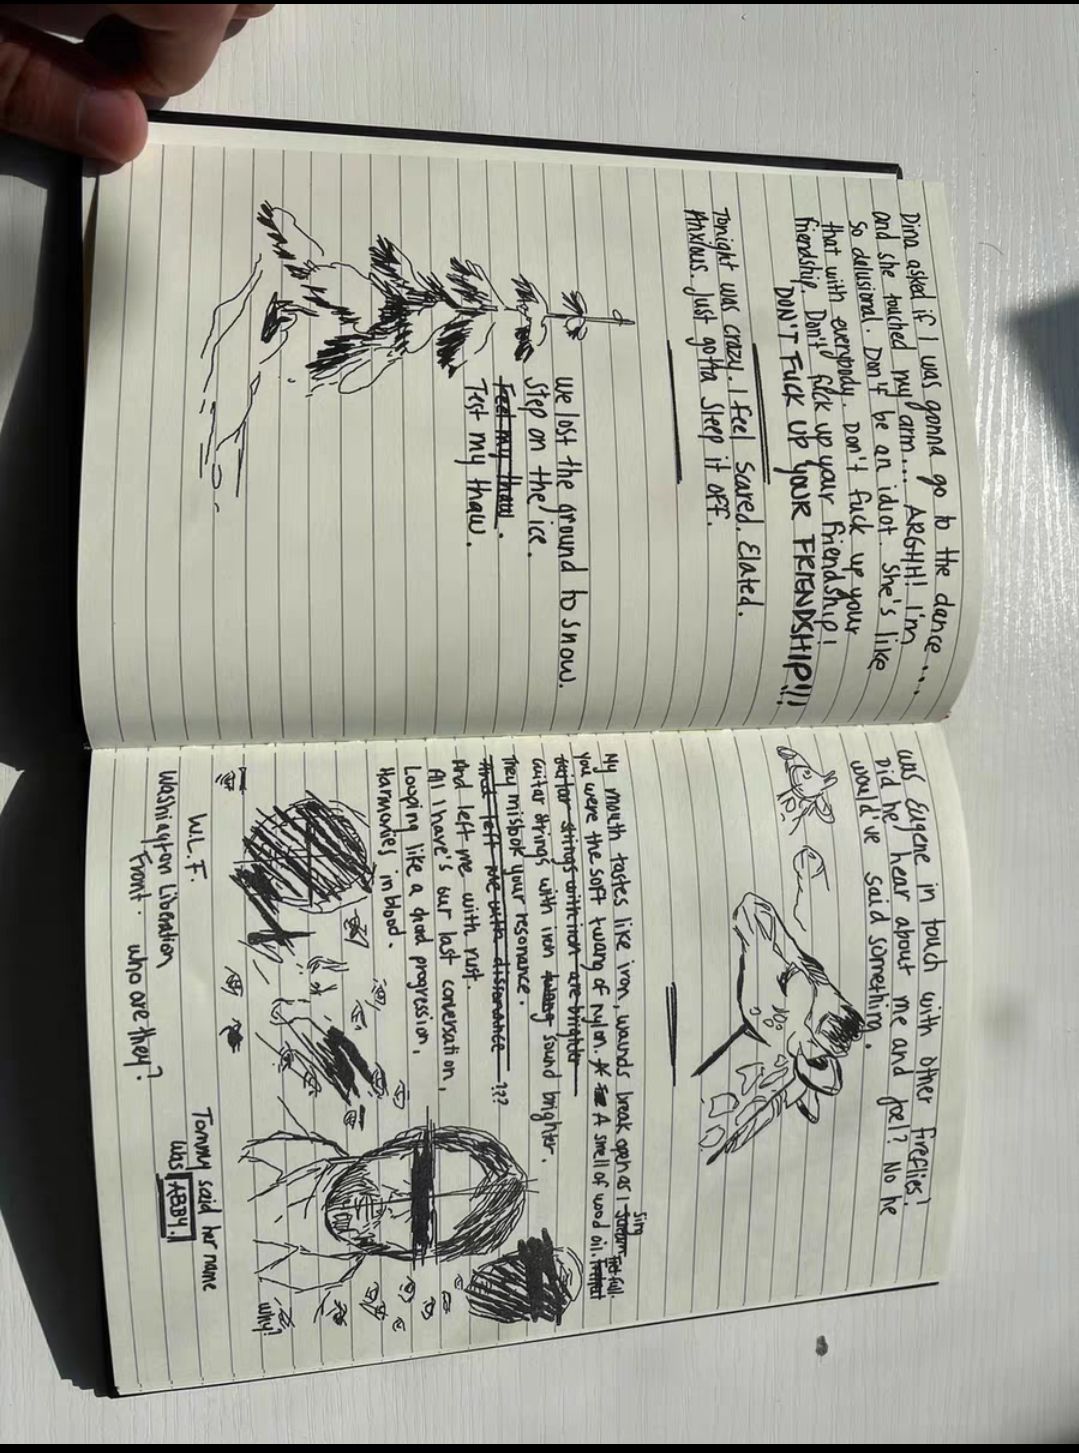 Dina asked if I was gonna go to the dance....
and she touched my arm... ARGHH! I'm
so delusional. Don't be an idiot. She's like
that with everybody. Don't fuck up your
friendship. Don't fuck up your friendship!
DON'T FUCK UP YOUR FRIENDSHIP!!!
Tonight was crazy. I feel scared. Elated.
Anxious. Just gotta sleep it off.
We lost the ground to snow.
Step on the ice.
Feel my thaw.
Test my thaw.
Was Eugene in touch with other fireflies?
Did he hear about me and Joel? No he
would've said something.
My mouth tastes like iron, wounds break open as I scream sing
You were the soft twang of nylon. A smell of wood oil.
Guitar strings with iron are brighter
Guitar strings with iron twang sound brighter.
They mistook your resonance.
And left me with dissonance ???
And left me with rust.
All I have's our last conversation,
Looping like a chord progression,
Harmonies in blood.
why?
Tommy said her name
was ABBY.
W.L.F.
Washington Liberation
Front. who are they?